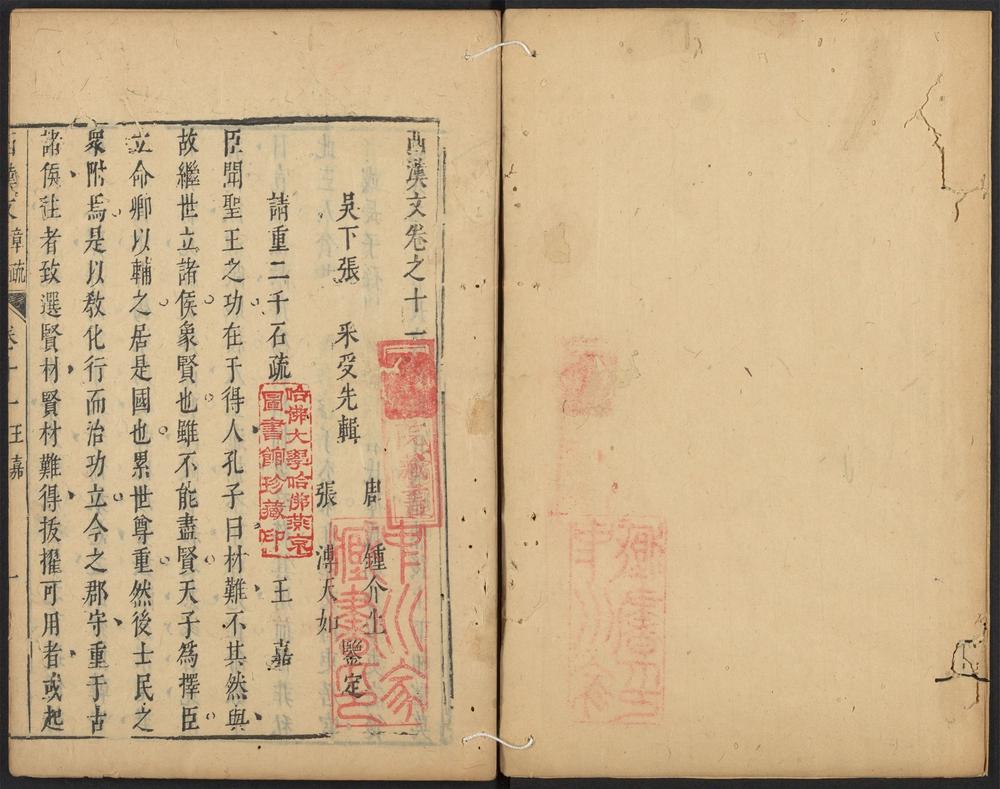 西漢文卷之十一
周 鍾介生
吳下張 采受先輯 鑒定
張 溥天如
請重二千石疏 王 嘉
臣聞聖王之功在于得人孔子曰材難不其然與
故繼世立諸侯象賢也雖不能盡賢天子爲擇臣
立命卿以輔之居是國也累世尊重然後士民之
衆附焉是以教化行而治功立今之郡守重于古
諸侯往者致選賢材賢材難得拔擢可用者或起
西漢文 疏 卷十一 王嘉 一
哈佛大學哈佛燕京
圖書館珍藏印
藏書